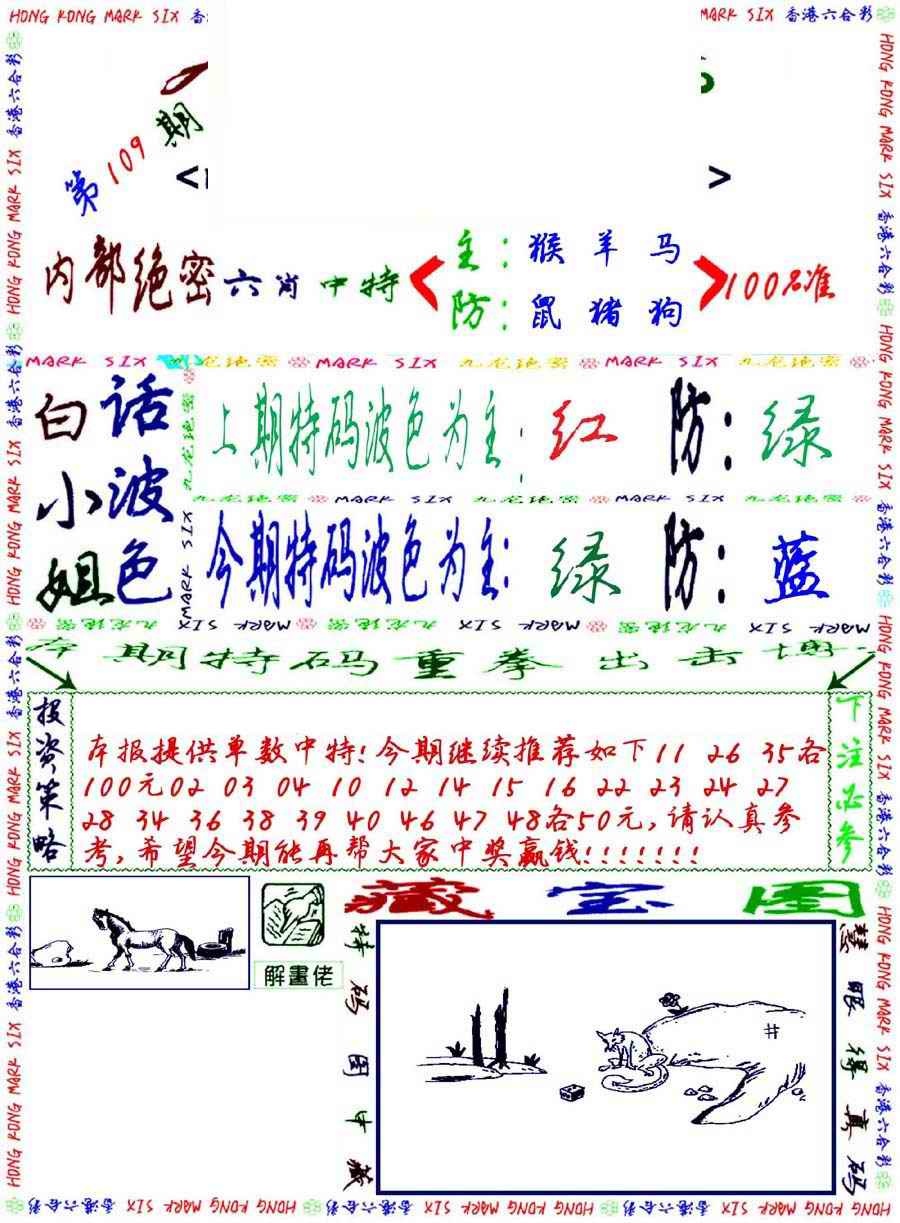 HONG KONG MARK SIX 香
MARK SIX 香港六合彩
第109期
内部绝密六肖中特
主：猴羊马
防：鼠猪狗
100%准
MARK SIX 九龙绝密 MARK SIX 九龙绝密 MARK SIX 九龙绝密
白话小波姐色
上期特码波色为主：红 防：绿
九龙绝密 MARK SIX 九龙绝密 MARK SIX 九龙绝密
今期特码波色为主：绿 防：蓝
九龙绝密 MARK SIX 九龙绝密 MARK SIX 九龙绝密 MARK SIX
期特码重拳出击
投资策略
本报提供单数中特！今期继续推荐如下11 26 35各
100元02 03 04 10 12 14 15 16 22 23 24 27
28 34 36 38 39 40 46 47 48各50元，请认真参
考，希望今期能再帮大家中奖赢钱！！！！！！！
下注必参
解畫佬
藏宝图
特码图中藏
慧眼得真码
HONG KONG MARK SIX 香港六合彩 HONG KONG MARK SIX 香港六合彩 HONG KONG MARK SIX 香港六合彩